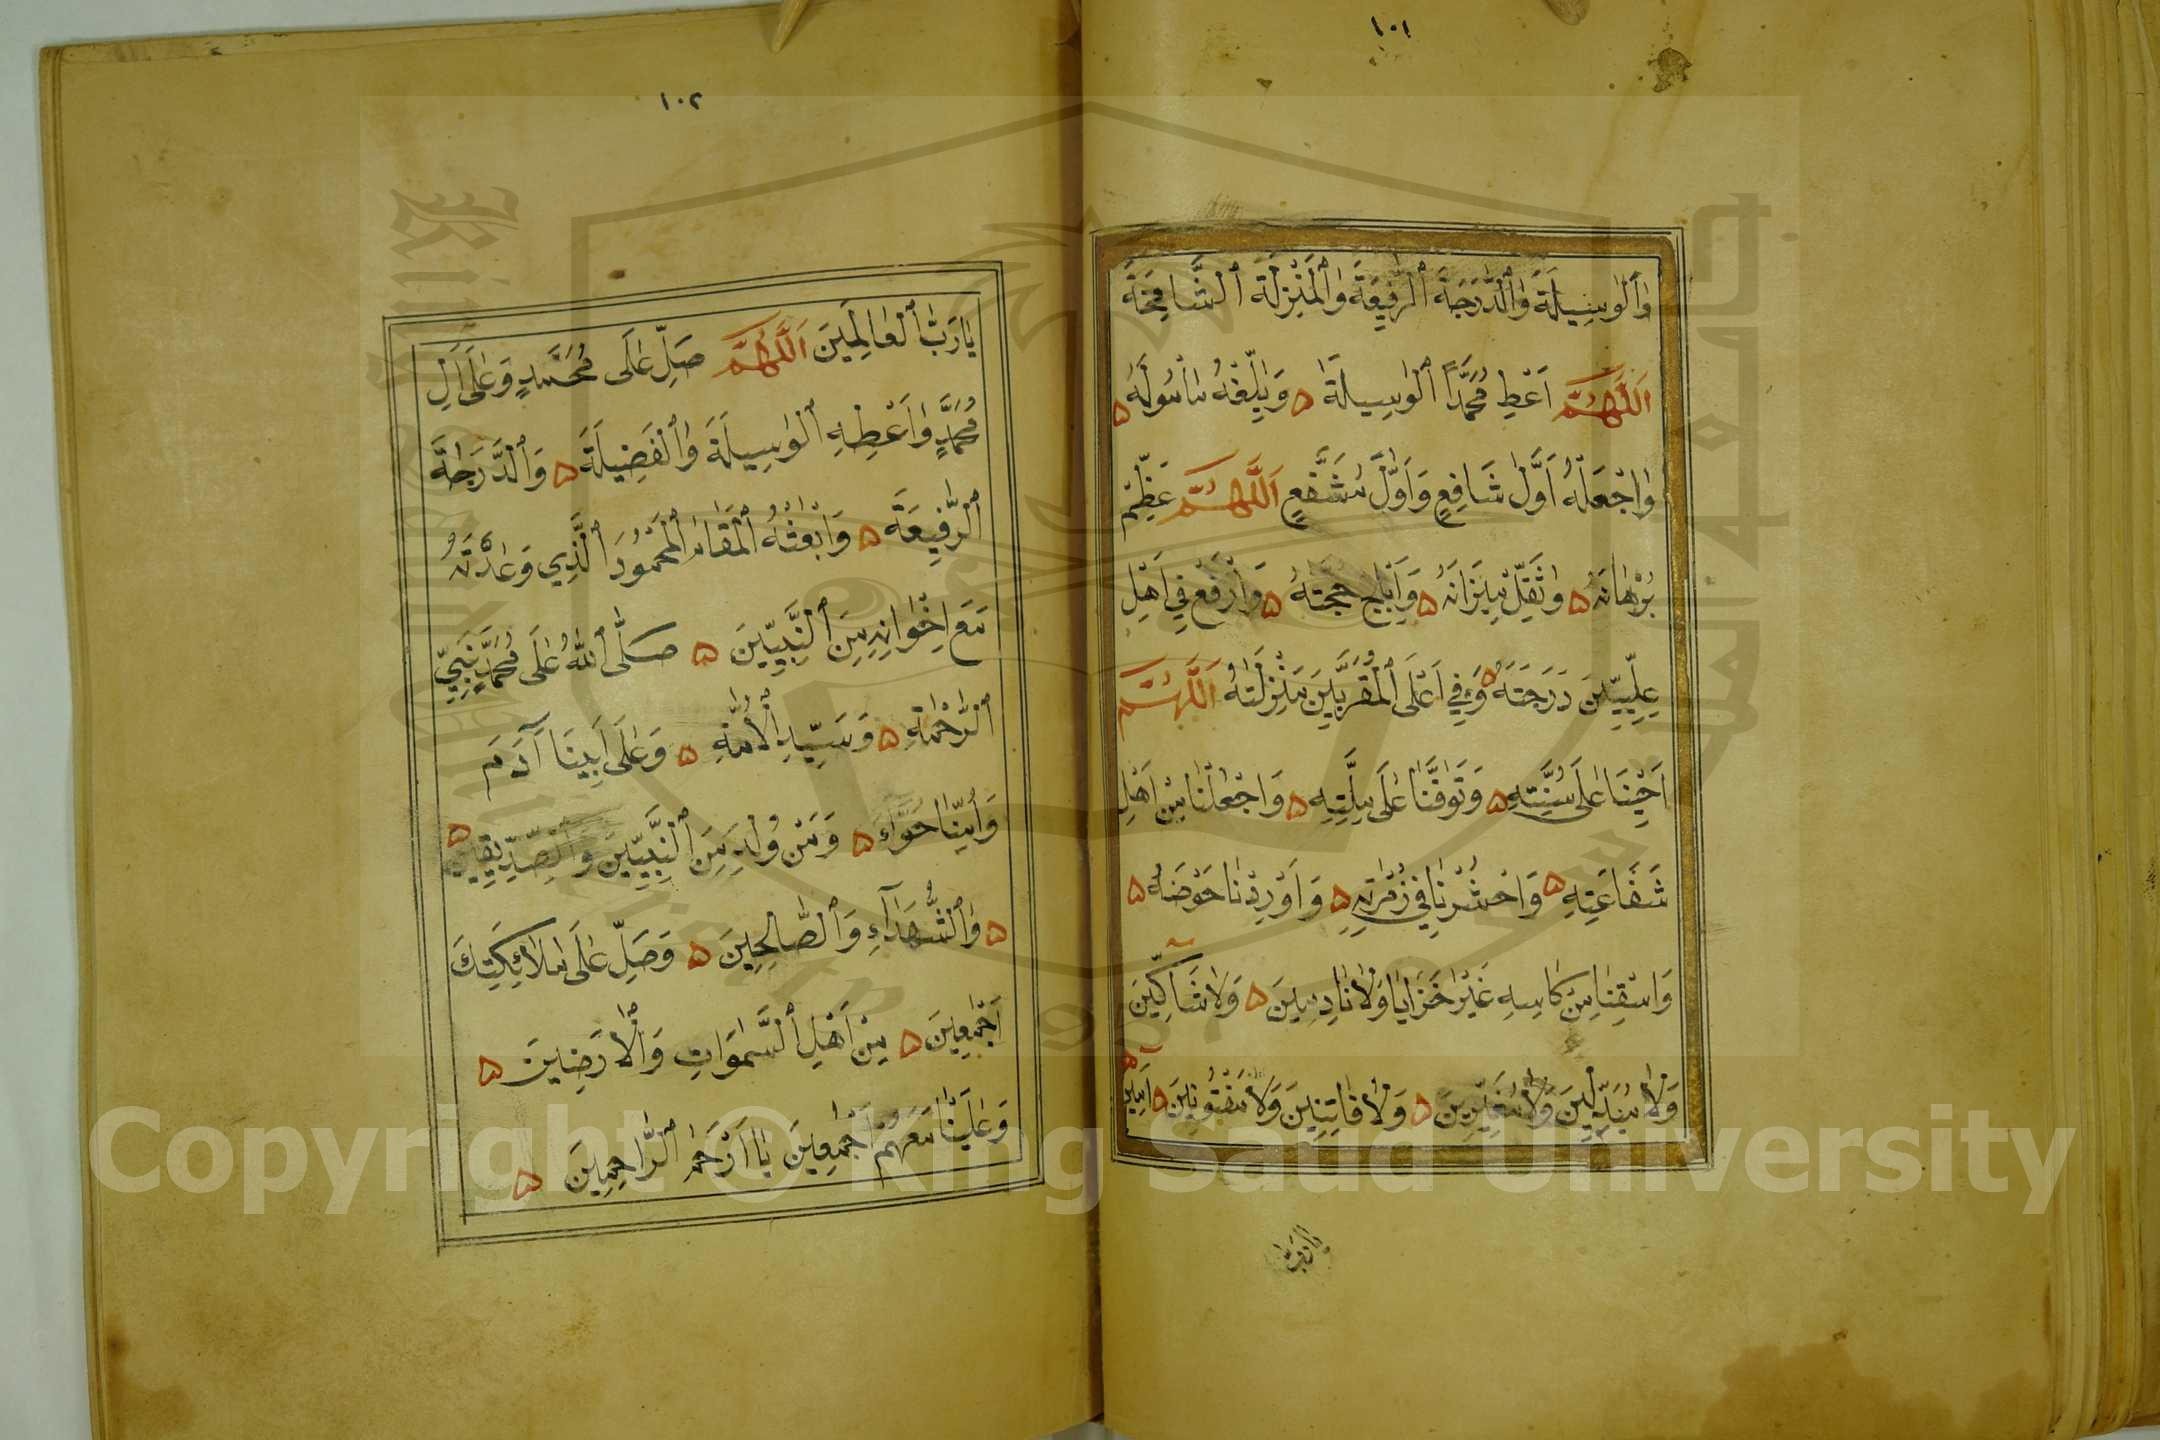 ١٠١
وَٱلْوَسِيلَةَ وَٱلدَّرَجَةَ ٱلرَّفِيعَةَ وَٱلْمَنْزِلَةَ ٱلشَّامِخَةَ
اَللّٰهُمَّ اَعْطِ مُحَمَّدًا ٱلْوَسِيلَةَ ۵ وَبَلِّغْهُ مَأْمُولَهُ ۵
وَاجْعَلْهُ اَوَّلَ شَافِعٍ وَاَوَّلَ مُشَفَّعٍ اَللّٰهُمَّ عَظِّمْ
بُرْهَانَهُ ۵ وَثَقِّلْ مِيزَانَهُ ۵ وَاَبْلِجْ حُجَّتَهُ ۵ وَارْفَعْ فِي اَهْلِ
عِلِّيِّينَ دَرَجَتَهُ ۵ وَفِي اَعْلَى ٱلْمُقَرَّبِينَ مَنْزِلَتَهُ اَللّٰهُمَّ
اَحْيِنَا عَلَى سُنَّتِهِ ۵ وَتَوَفَّنَا عَلَى مِلَّتِهِ ۵ وَاجْعَلْنَا مِنْ اَهْلِ
شَفَاعَتِهِ ۵ وَاحْشُرْنَا فِي زُمْرَتِهِ ۵ وَاَوْرِدْنَا حَوْضَهُ ۵
وَاسْقِنَا مِنْ كَاسِهِ غَيْرَ خَزَايَا وَلَا نَادِمِينَ ۵ وَلَا شَاكِّينَ
وَلَا مُبَدِّلِينَ وَلَا مُغَيِّرِينَ ۵ وَلَا فَاتِنِينَ وَلَا مَفْتُونِينَ ۵ اٰمِينَ
١٠٢
يَا رَبَّ ٱلْعَالَمِينَ اَللّٰهُمَّ صَلِّ عَلَى مُحَمَّدٍ وَعَلَى اٰلِ
مُحَمَّدٍ وَاَعْطِهِ ٱلْوَسِيلَةَ وَٱلْفَضِيلَةَ ۵ وَٱلدَّرَجَةَ
ٱلرَّفِيعَةَ ۵ وَابْعَثْهُ ٱلْمَقَامَ ٱلْمَحْمُودَ ٱلَّذِي وَعَدْتَهُ
مَعَ اِخْوَانِهِ مِنَ ٱلنَّبِيِّينَ ۵ صَلَّى ٱللّٰهُ عَلَى مُحَمَّدٍ نَبِيِّ
ٱلرَّحْمَةِ ۵ وَسَيِّدِ ٱلْاُمَّةِ ۵ وَعَلَى اَبِينَا آدَمَ
وَاُمِّنَا حَوَّاءَ ۵ وَمَنْ وُلِدَ مِنَ ٱلنَّبِيِّينَ وَٱلصِّدِّيقِينَ ۵
وَٱلشُّهَدَآءِ وَٱلصَّالِحِينَ ۵ وَصَلِّ عَلَى مَلَائِكَتِكَ ۵
اَجْمَعِينَ ۵ مِنْ اَهْلِ ٱلسَّمٰوَاتِ وَٱلْاَرَضِينَ ۵
وَعَلَيْنَا مَعَهُمْ اَجْمَعِينَ يَا اَرْحَمَ ٱلرَّاحِمِينَ ۵
Copyright © King Saud University